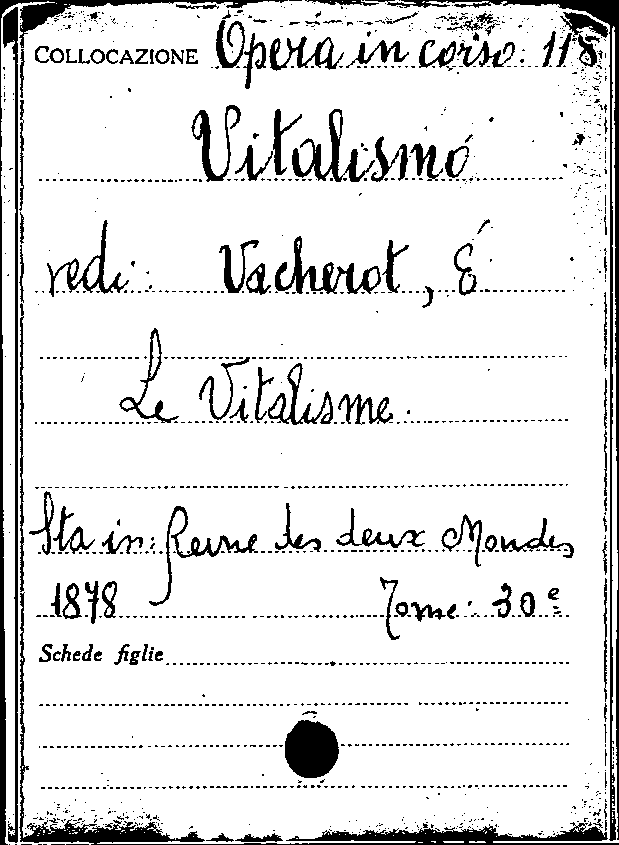 COLLOCAZIONE Opera in corso. 118
Vitalismo
vedi: Vacherot, É
Le Vitalisme.
Sta in: Revue des deux Mondes
1878 Tome: 30e
Schede figlie